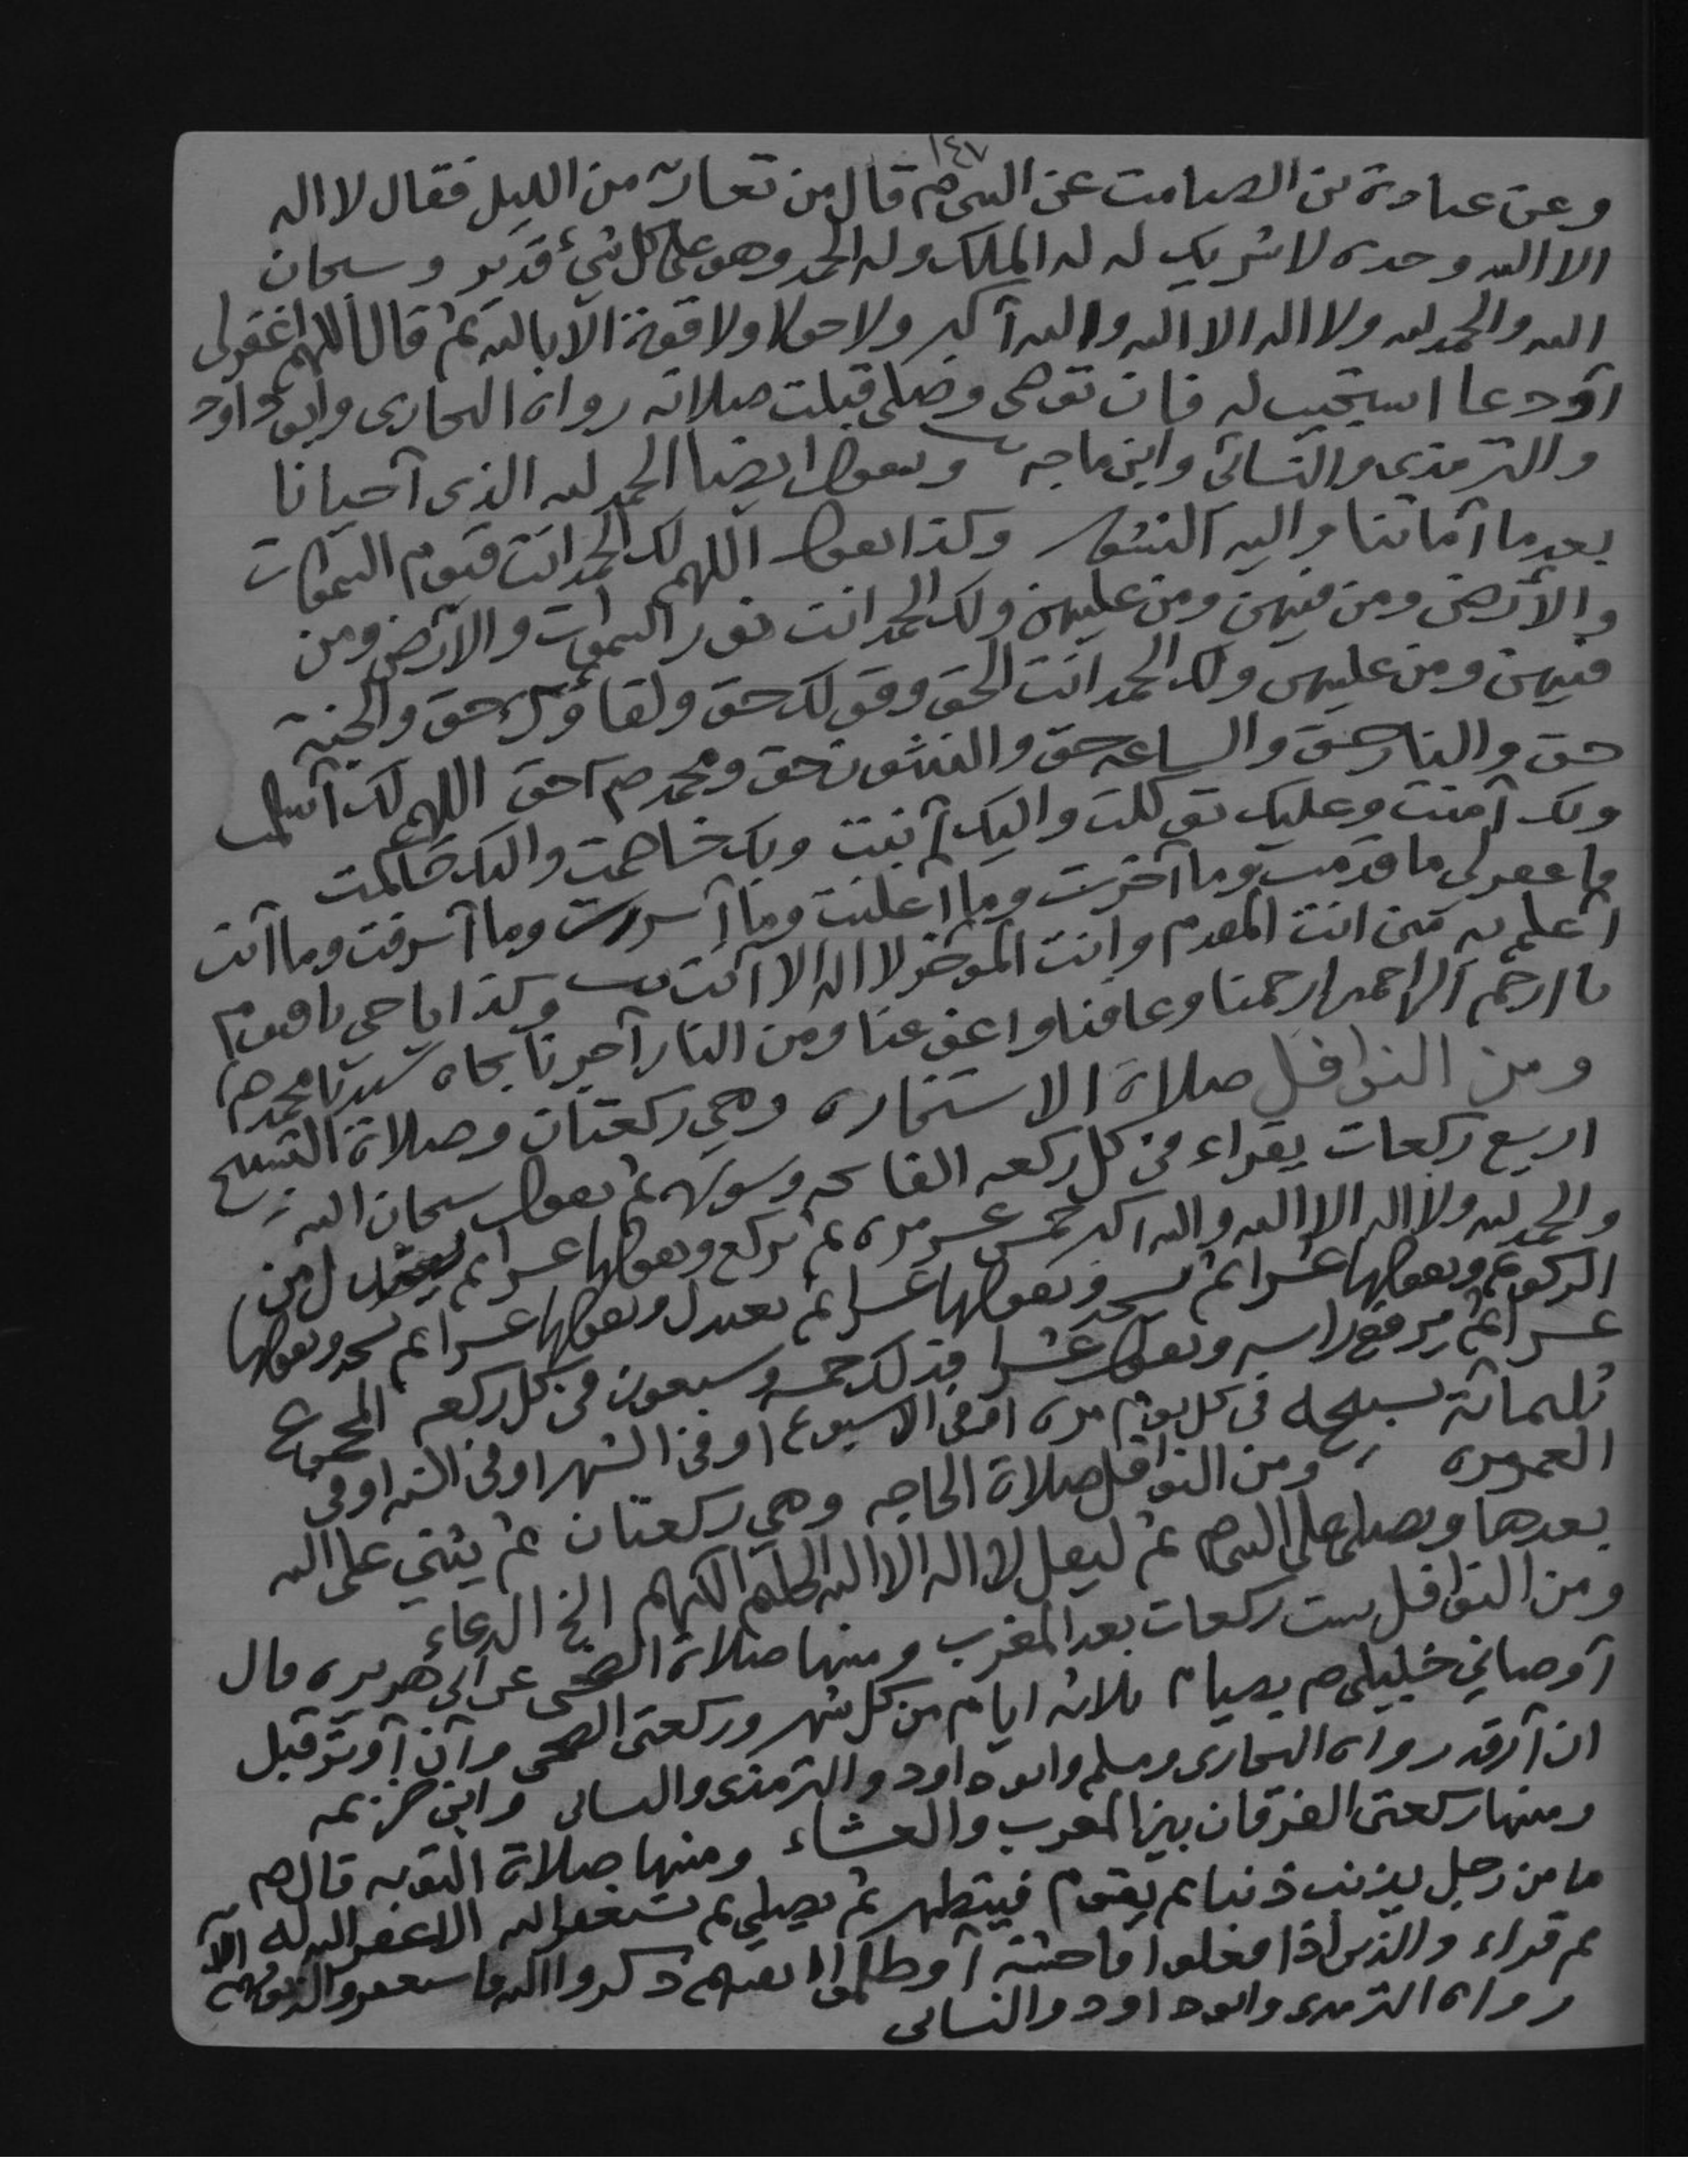 ١٤٧
وعن عبادة بن الصامت عن النبي صم قال من تعار من الليل فقال لا اله
الا الله وحده لا شريك له له الملك وله الحمد وهو على كل شيء قدير وسبحان
الله والحمد لله ولا اله الا الله والله أكبر ولا حول ولا قوة الا بالله ثم قال اللهم اغفر لي
أو دعا استجيب له فان توضى وصلى قبلت صلاته رواه البخارى وابو داود
والترمذى والنسائي وابن ماجه ويقول ايضا الحمد لله الذى أحيانا
بعد ما أماتنا واليه النشور وكذا يقول اللهم لك الحمد انت قيوم السموات
والأرض ومن فيهن ومن عليهن ولك الحمد انت نور السموات والأرض ومن
فيهن ومن عليهن ولك الحمد انت الحق وقولك حق ولقاؤك حق والجنة
حق والنار حق والساعه حق والنشور حق ومحمد صم حق اللهم لك أسلمت
وبك آمنت وعليك توكلت واليك أنبت وبك خاصمت واليك حاكمت
فاغفر لي ما قدمت وما أخرت وما أعلنت وما أسررت وما أسرفت وما أنت
أعلم به مني انت المقدم وانت المؤخر لا اله الا أنت وكذا يا حي يا قيوم
يا ارحم الراحمين ارحمنا وعافنا واعف عنا ومن النار أجيرنا بجاه سيدنا محمد صم
ومن النوافل صلاة الاستخاره وهي ركعتان وصلاة التسبيح
اربع ركعات يقراء في كل ركعه الفاتحه وسوره ثم يقول سبحان الله
والحمد لله ولا اله الا الله والله اكبر خمس عسر مره ثم يركع ويقولها عسرا ثم يعتدل من
الركوع ويقولها عشرا ثم يسجد ويقولها عسرا ثم يعتدل ويقولها عسرا ثم يسجد ويقولها
عسرا ثم يرفع راسه ويقول عشرا فذلك خمسه وسبعون في كل ركعه المجموع
ثلثمائة تسبيحه في كل يوم مره او في الاسبوع او في الشهر او في السنه او في
العمر مره ومن النوافل صلاة الحاجه وهي ركعتان ثم يثني على الله
بعدها ويصلى على النبي صم ثم ليقل لا اله الا الله الحليم الكريم الخ الدعاء
ومن النوافل ست ركعات بعد المغرب ومنها صلاة الضحى عن ابي هريره قال
أوصاني خليلى صم بصيام ثلاثه ايام من كل شهر وركعتى الضحى وأن أوتر قبل
ان أرقد رواه البخارى ومسلم وابو داود والترمذى والنسائى وابن خزيمه
ومنها ركعتى الفرقان بين المغرب والعشاء ومنها صلاة التوبه قال صم
ما من رجل يذنب ذنبا ثم يقوم فيتطهر ثم يصلي ثم يستغفر الله الا غفر الله له
ثم قراء والذين أذا فعلوا فاحشة أو ظلموا انفسهم ذكروا الله فاستغفروا لذنوبهم الآيه
رواه الترمذى وابو داود والنسائى